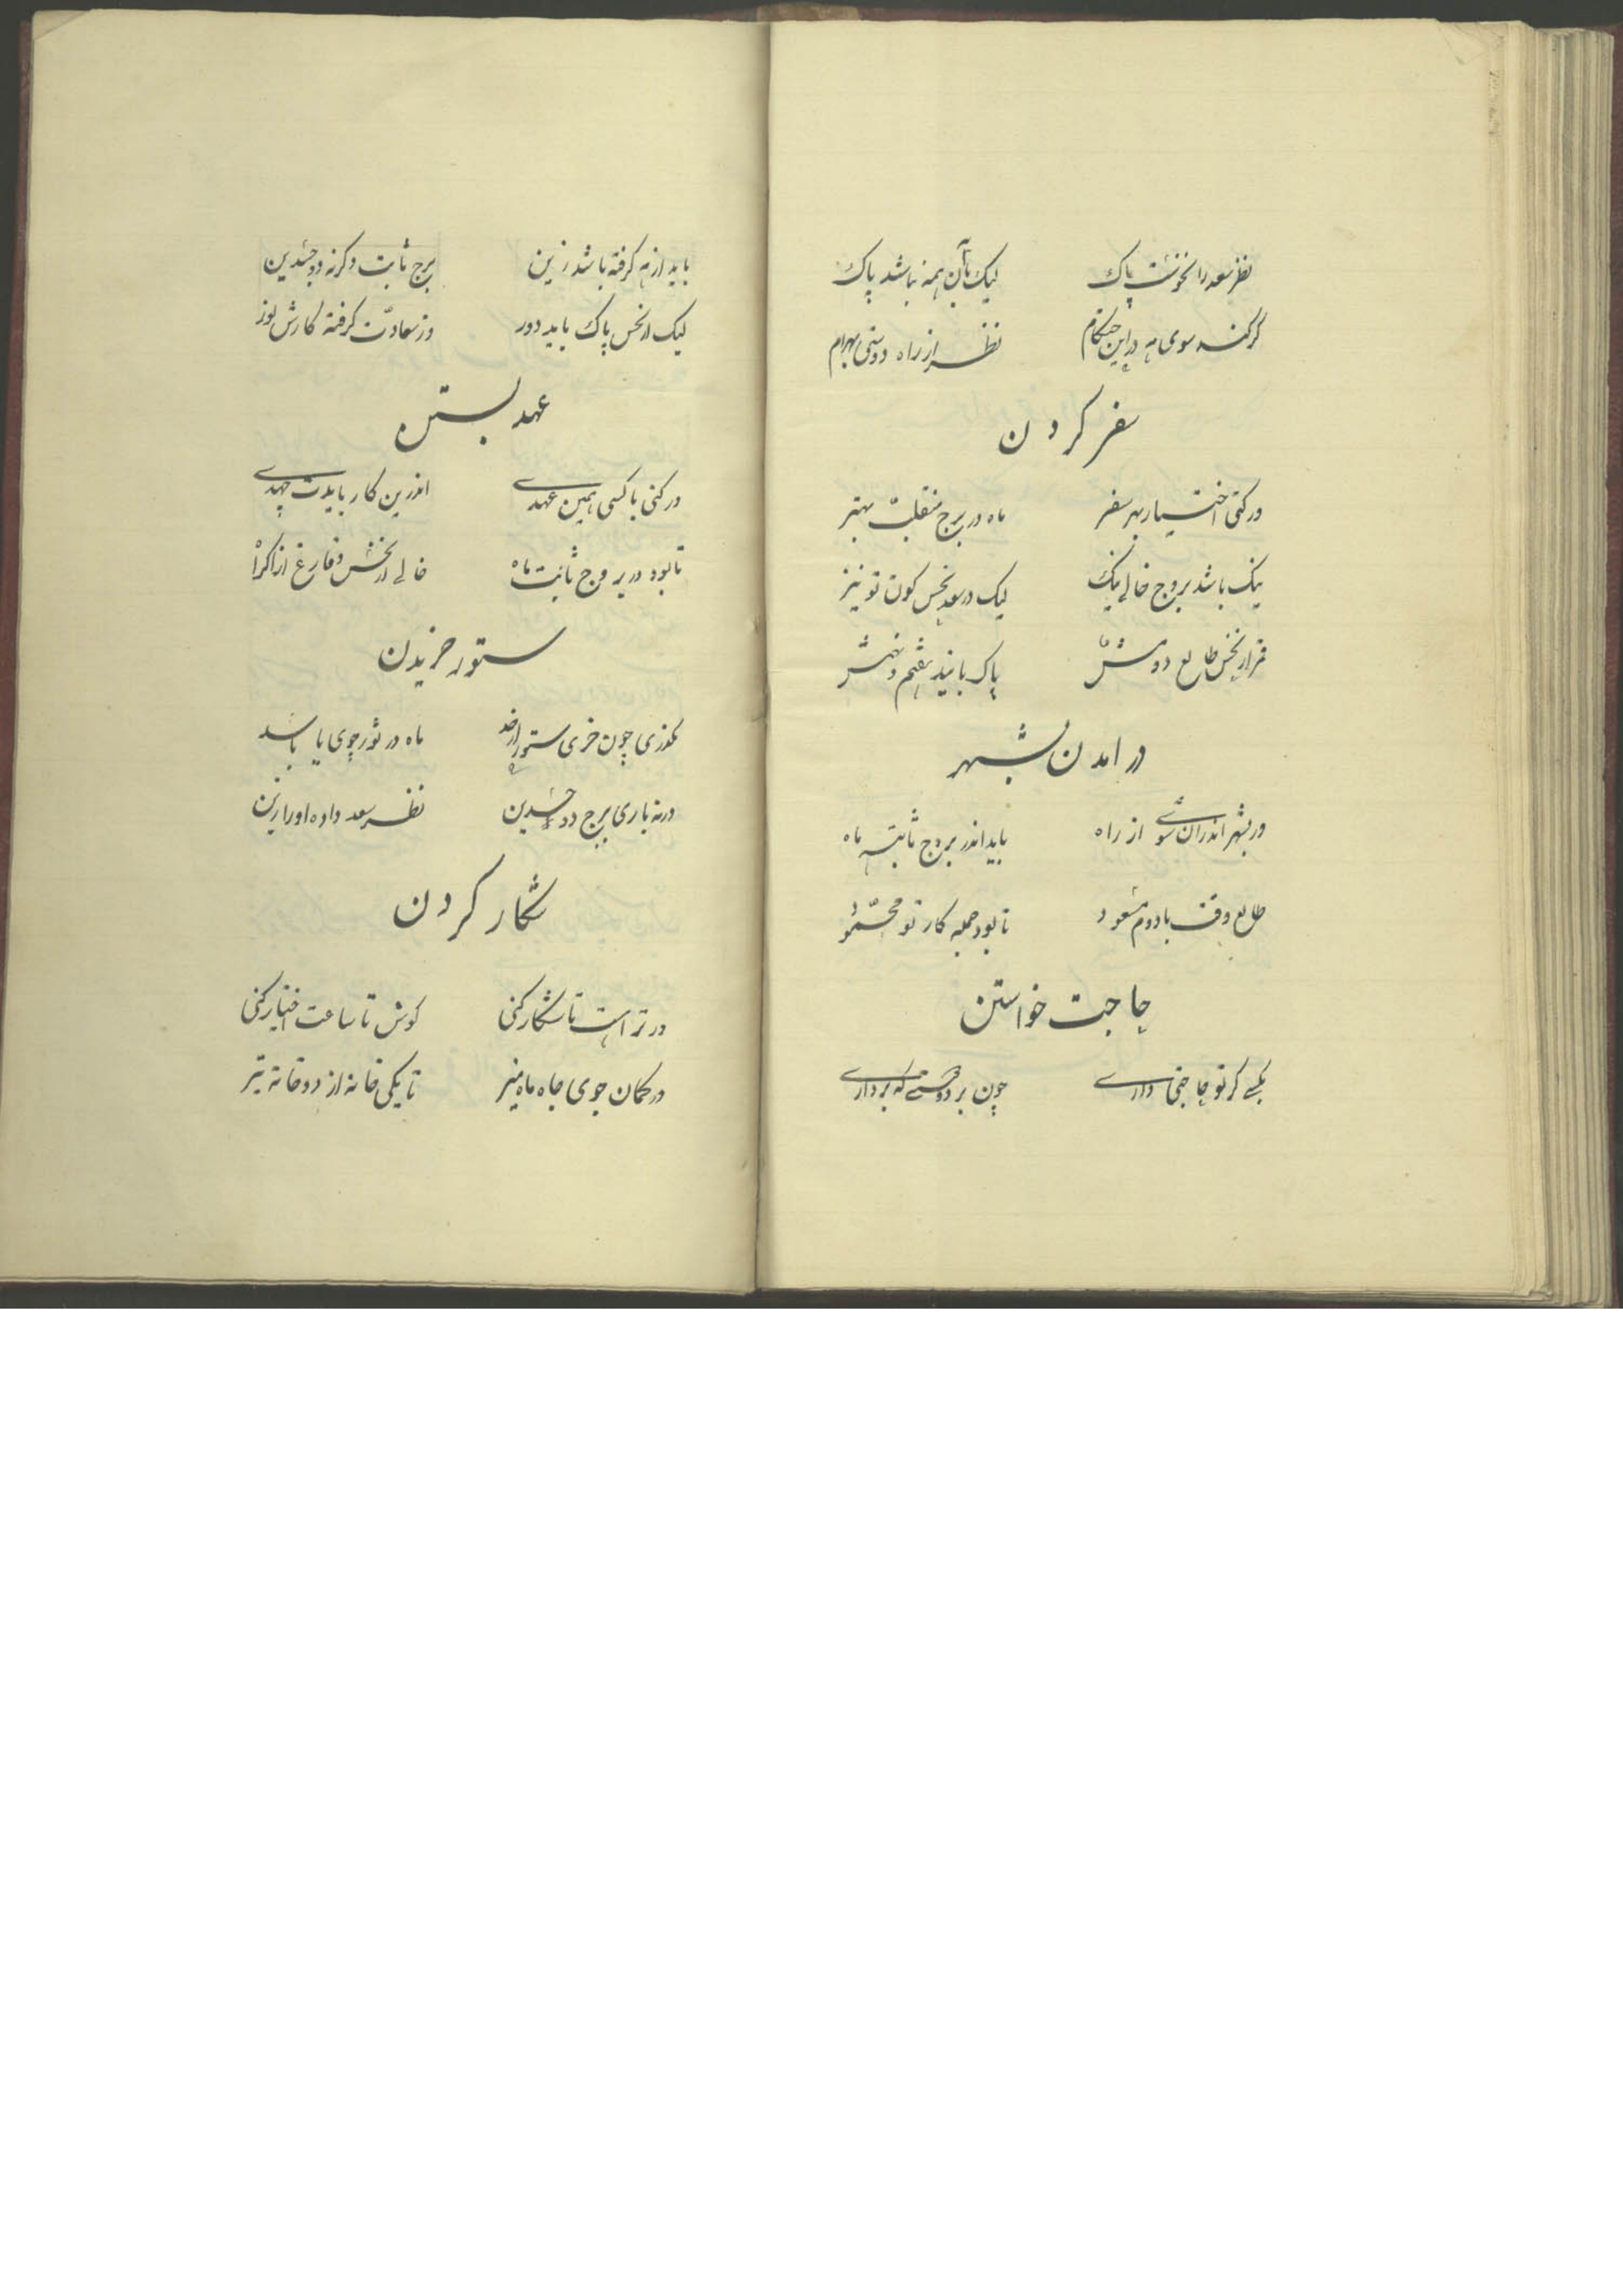 نظر سعد را نحوست پاک لیک بآن همه نباشد پاک
گر کند سوی مه در این هنگام نظر از راه دوستی بهرام
سفر کردن
ور کنی اختیار بهر سفر ماه در برج منقلب بهتر
نیک باشد بروج خالی نیک لیک در سعد نحس کون تو نیز
قمر از نحس طالع دومش پاک باید هفتم و نهمش
در امدن بشهر
ور بشهر اندران شوی از راه باید اندر بروج ثابته ماه
طالع وقت با دوم مسعود تا بود جمله کار تو محمود
حاجت خواستن
بکسی گر تو حاجتی داری چون بر دوستی که برداری
باید از مه گرفته باشد زین برج ثابت وگرنه ذو جسدین
لیک از نحس پاک باید دور وز سعادت گرفته کارش نور
عهد بستن
ور کنی با کسی همین عهدی اندرین کار بایدت جهدی
تا بود در بروج ثابت ماه خالی از نحس و فارغ از اکراه
ستور خریدن
چون خری ستور ماه در ثور جوی یا باسد
ورنه باری برج ذو جسدین نظر سعد داده او را زین
شکار کردن
ور ترا هست تا شکار کنی کوش تا ساعت اختیار کنی
در کمان جوی جاه ماه منیر تا یکی خانه از دو خانه تیر